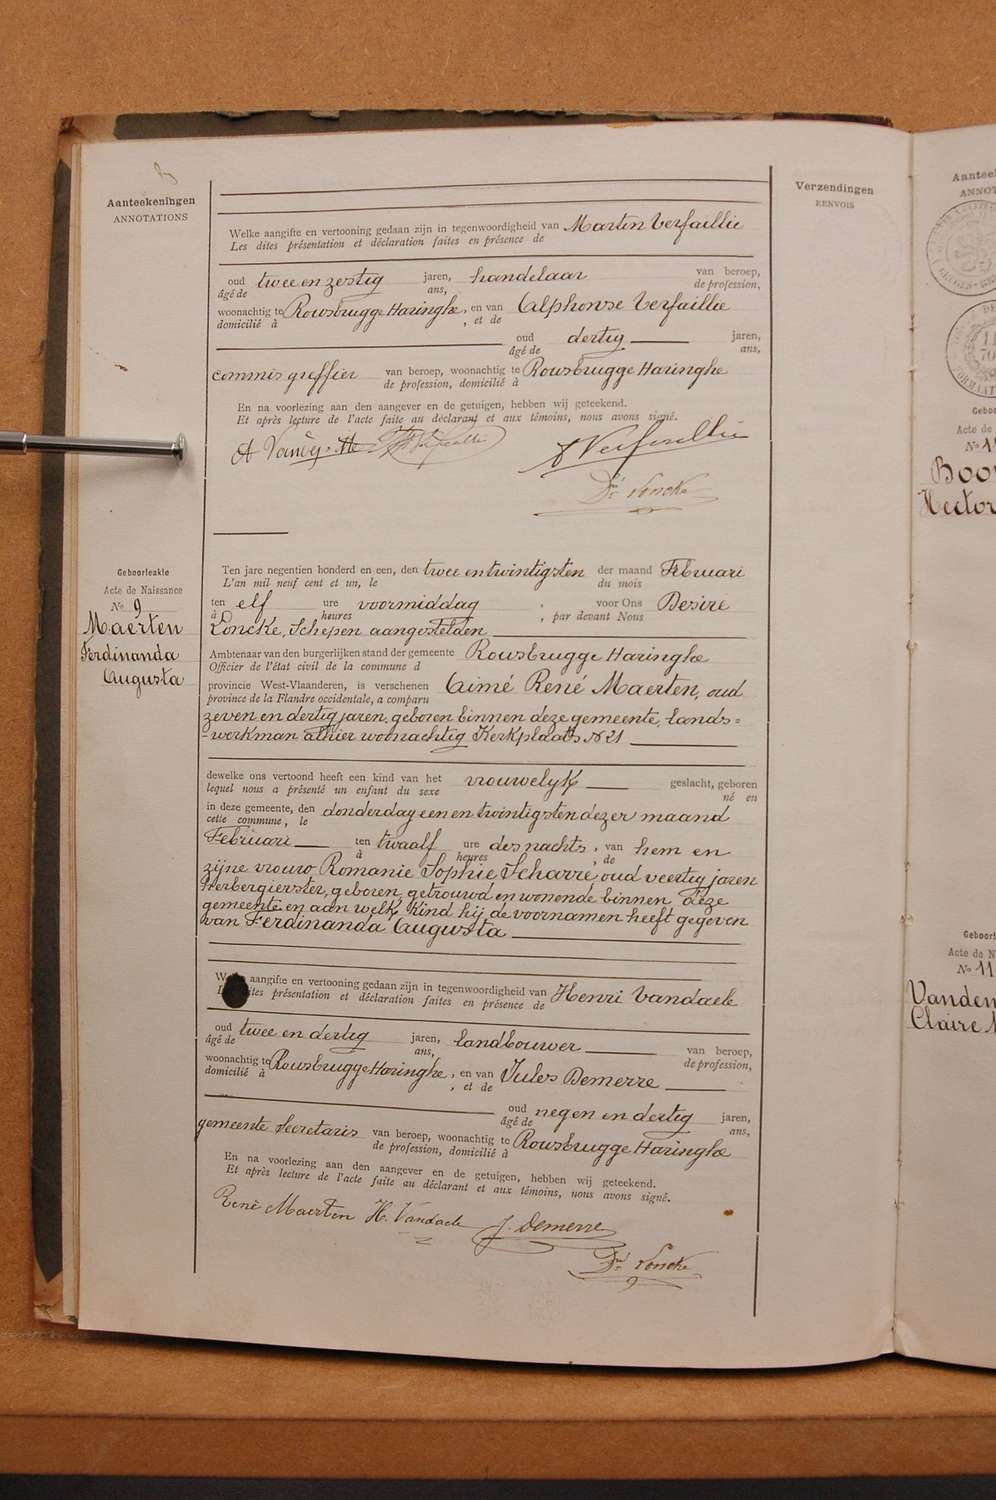 Aanteekeningen
ANNOTATIONS
Verzendingen
RENVOIS
Welke aangifte en vertooning gedaan zijn in tegenwoordigheid van Marten Verfaillie
Les dites présentation et déclaration faites en présence de
oud twee en zestig jaren, handelaar van beroep,
âgé de ans, de profession,
woonachtig te Rousbrugge Haringhe, en van Alphonse Verfaillie
domicilié à , et de
oud dertig jaren,
âgé de ans,
commis greffier van beroep, woonachtig te Rousbrugge Haringhe
de profession, domicilié à
En na voorlezing aan den aangever en de getuigen, hebben wij geteekend.
Et après lecture de l'acte faite au déclarant et aux témoins, nous avons signé.
A Verfaillie
Dré Loncke
Geboorteakte
Acte de Naissance
No 9
Maerten
Ferdinanda
Augusta
Ten jare negentien honderd en een, den twee en twintigsten der maand Februari
L'an mil neuf cent et un, le du mois
ten elf ure voormiddag , voor Ons Desiré
à heures , par devant Nous
Loncke, Schepen aangestelden
Ambtenaar van den burgerlijken stand der gemeente Rousbrugge Haringhe
Officier de l'état civil de la commune d
provincie West-Vlaanderen, is verschenen Aimé René Maerten, oud
province de la Flandre occidentale, a comparu
zeven en dertig jaren, geboren binnen deze gemeente, lands=
=werkman alhier woonachtig Kerkplaats No 21
dewelke ons vertoond heeft een kind van het vrouwelyk geslacht, geboren
lequel nous a présenté un enfant du sexe né en
in deze gemeente, den donderdag een en twintigsten dezer maand
cette commune, le
Februari ten twaalf ure des nachts, van hem en
à heures , de
zijne vrouw Romanie Sophie Scharre oud veertig jaren
herbergierster, geboren, getrouwd en wonende binnen deze
gemeente en aan welk kind hij de voornamen heeft gegeven
van Ferdinanda Augusta
Welke aangifte en vertooning gedaan zijn in tegenwoordigheid van Henri Vandaele
Les dites présentation et déclaration faites en présence de
oud twee en dertig jaren, landbouwer van beroep,
âgé de ans, de profession,
woonachtig te Rousbrugge Haringhe, en van Jules Demerre
domicilié à , et de
oud negen en dertig jaren,
âgé de ans,
gemeente secretaris van beroep, woonachtig te Rousbrugge Haringhe
de profession, domicilié à
En na voorlezing aan den aangever en de getuigen, hebben wij geteekend.
Et après lecture de l'acte faite au déclarant et aux témoins, nous avons signé.
René Maerten H. Vandaele J. Demerre
Dré Loncke
Acte de
Boo
Hector
Acte de N
No 11
Vanden
Claire